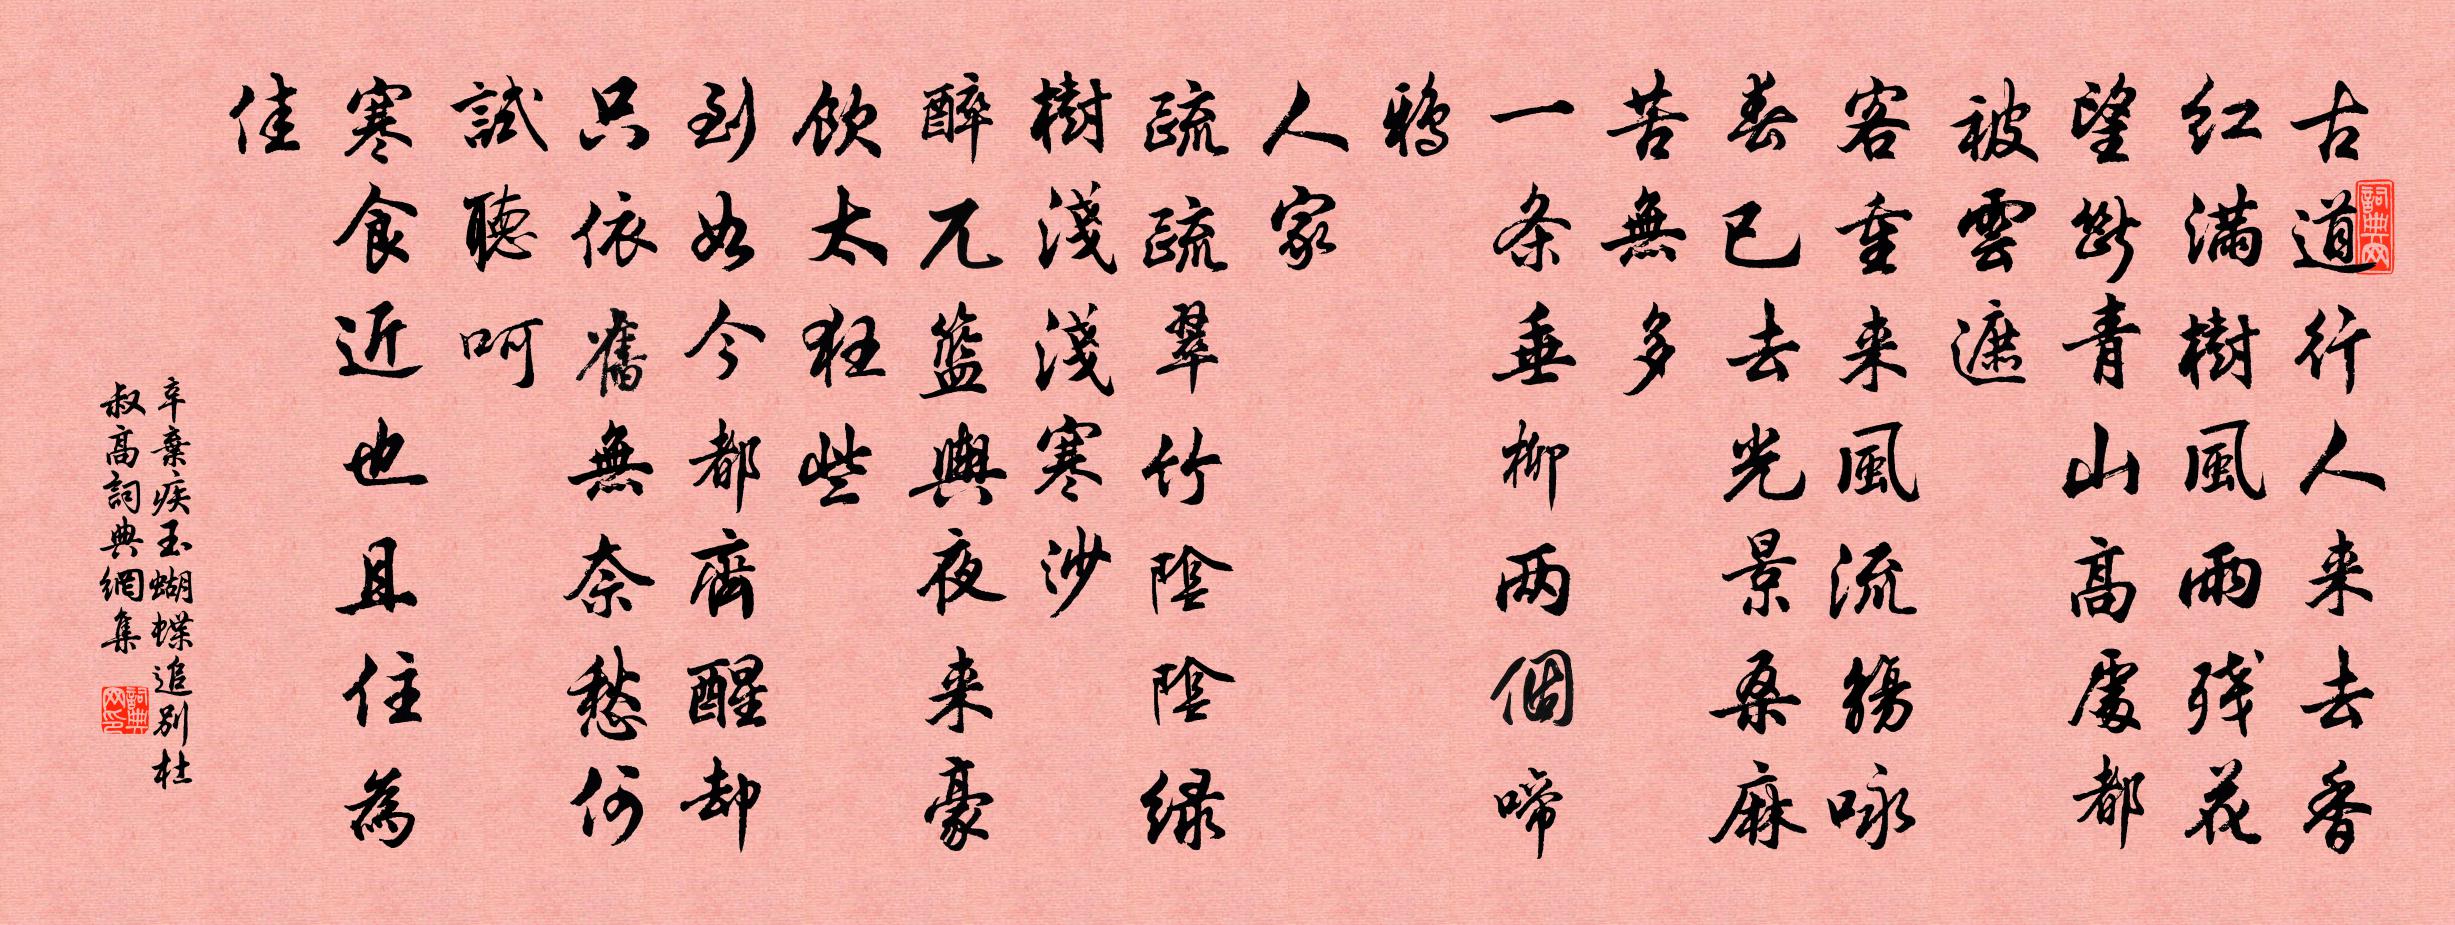 古道行人来去香
红满樹風雨残花
望斷青山高處都
被雲遮
客重来風流觴咏
春已去光景桑麻
苦無多
一条垂柳两個啼
鴉
人家
疏疏翠竹陰陰緑
樹淺淺寒沙
醉兀籃輿夜来豪
飲太狂些
到如今都齊醒却
只依舊無奈愁何
試聽呵
寒食近也且住為
佳
辛棄疾玉蝴蝶追别杜
叔高詞典網集
詞典网
詞典网印